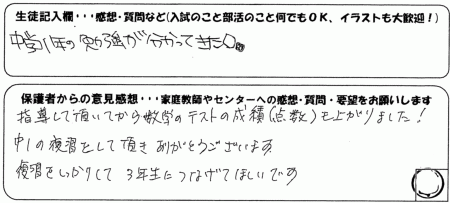 生徒記入欄・・・感想・質問など(入試のこと部活のこと何でもOK、イラストも大歓迎!)
中学1年の勉強が分かってきた○。
保護者からの意見感想・・・家庭教師やセンターへの感想・質問・要望をお願いします
指導して頂いてから数学のテストの成績(点数)も上がりました!
中1の復習をして頂きありがとうございます
復習をしっかりして3年生につなげてほしいです